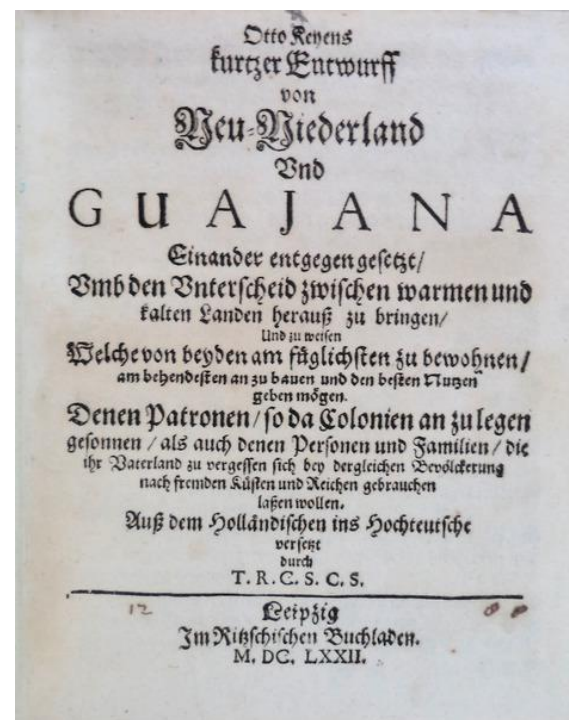 Otto Keyens
kurtzer Entwurff
von
Neu-Niederland
Vnd
GUAJANA
Einander entgegen gesetzt/
Vmb den Vnterscheid zwischen warmen und
kalten Landen herauß zu bringen/
Und zu weisen
Welche von beyden am füglichsten zu bewohnen/
am behendesten an zu bauen und den besten Nutzen
geben mögen.
Denen Patronen/ so da Colonien an zu legen
gesonnen/ als auch denen Personen und Familien/ die
ihr Vaterland zu vergessen sich bey dergleichen Bevölckerung
nach fremden Küsten und Reichen gebrauchen
laßen wollen.
Auß dem Holländischen ins Hochteutsche
versetzt
durch
T. R. C. S. C. S.
12
Leipzig
Im Ritzschischen Buchladen.
M. DC. LXXII.